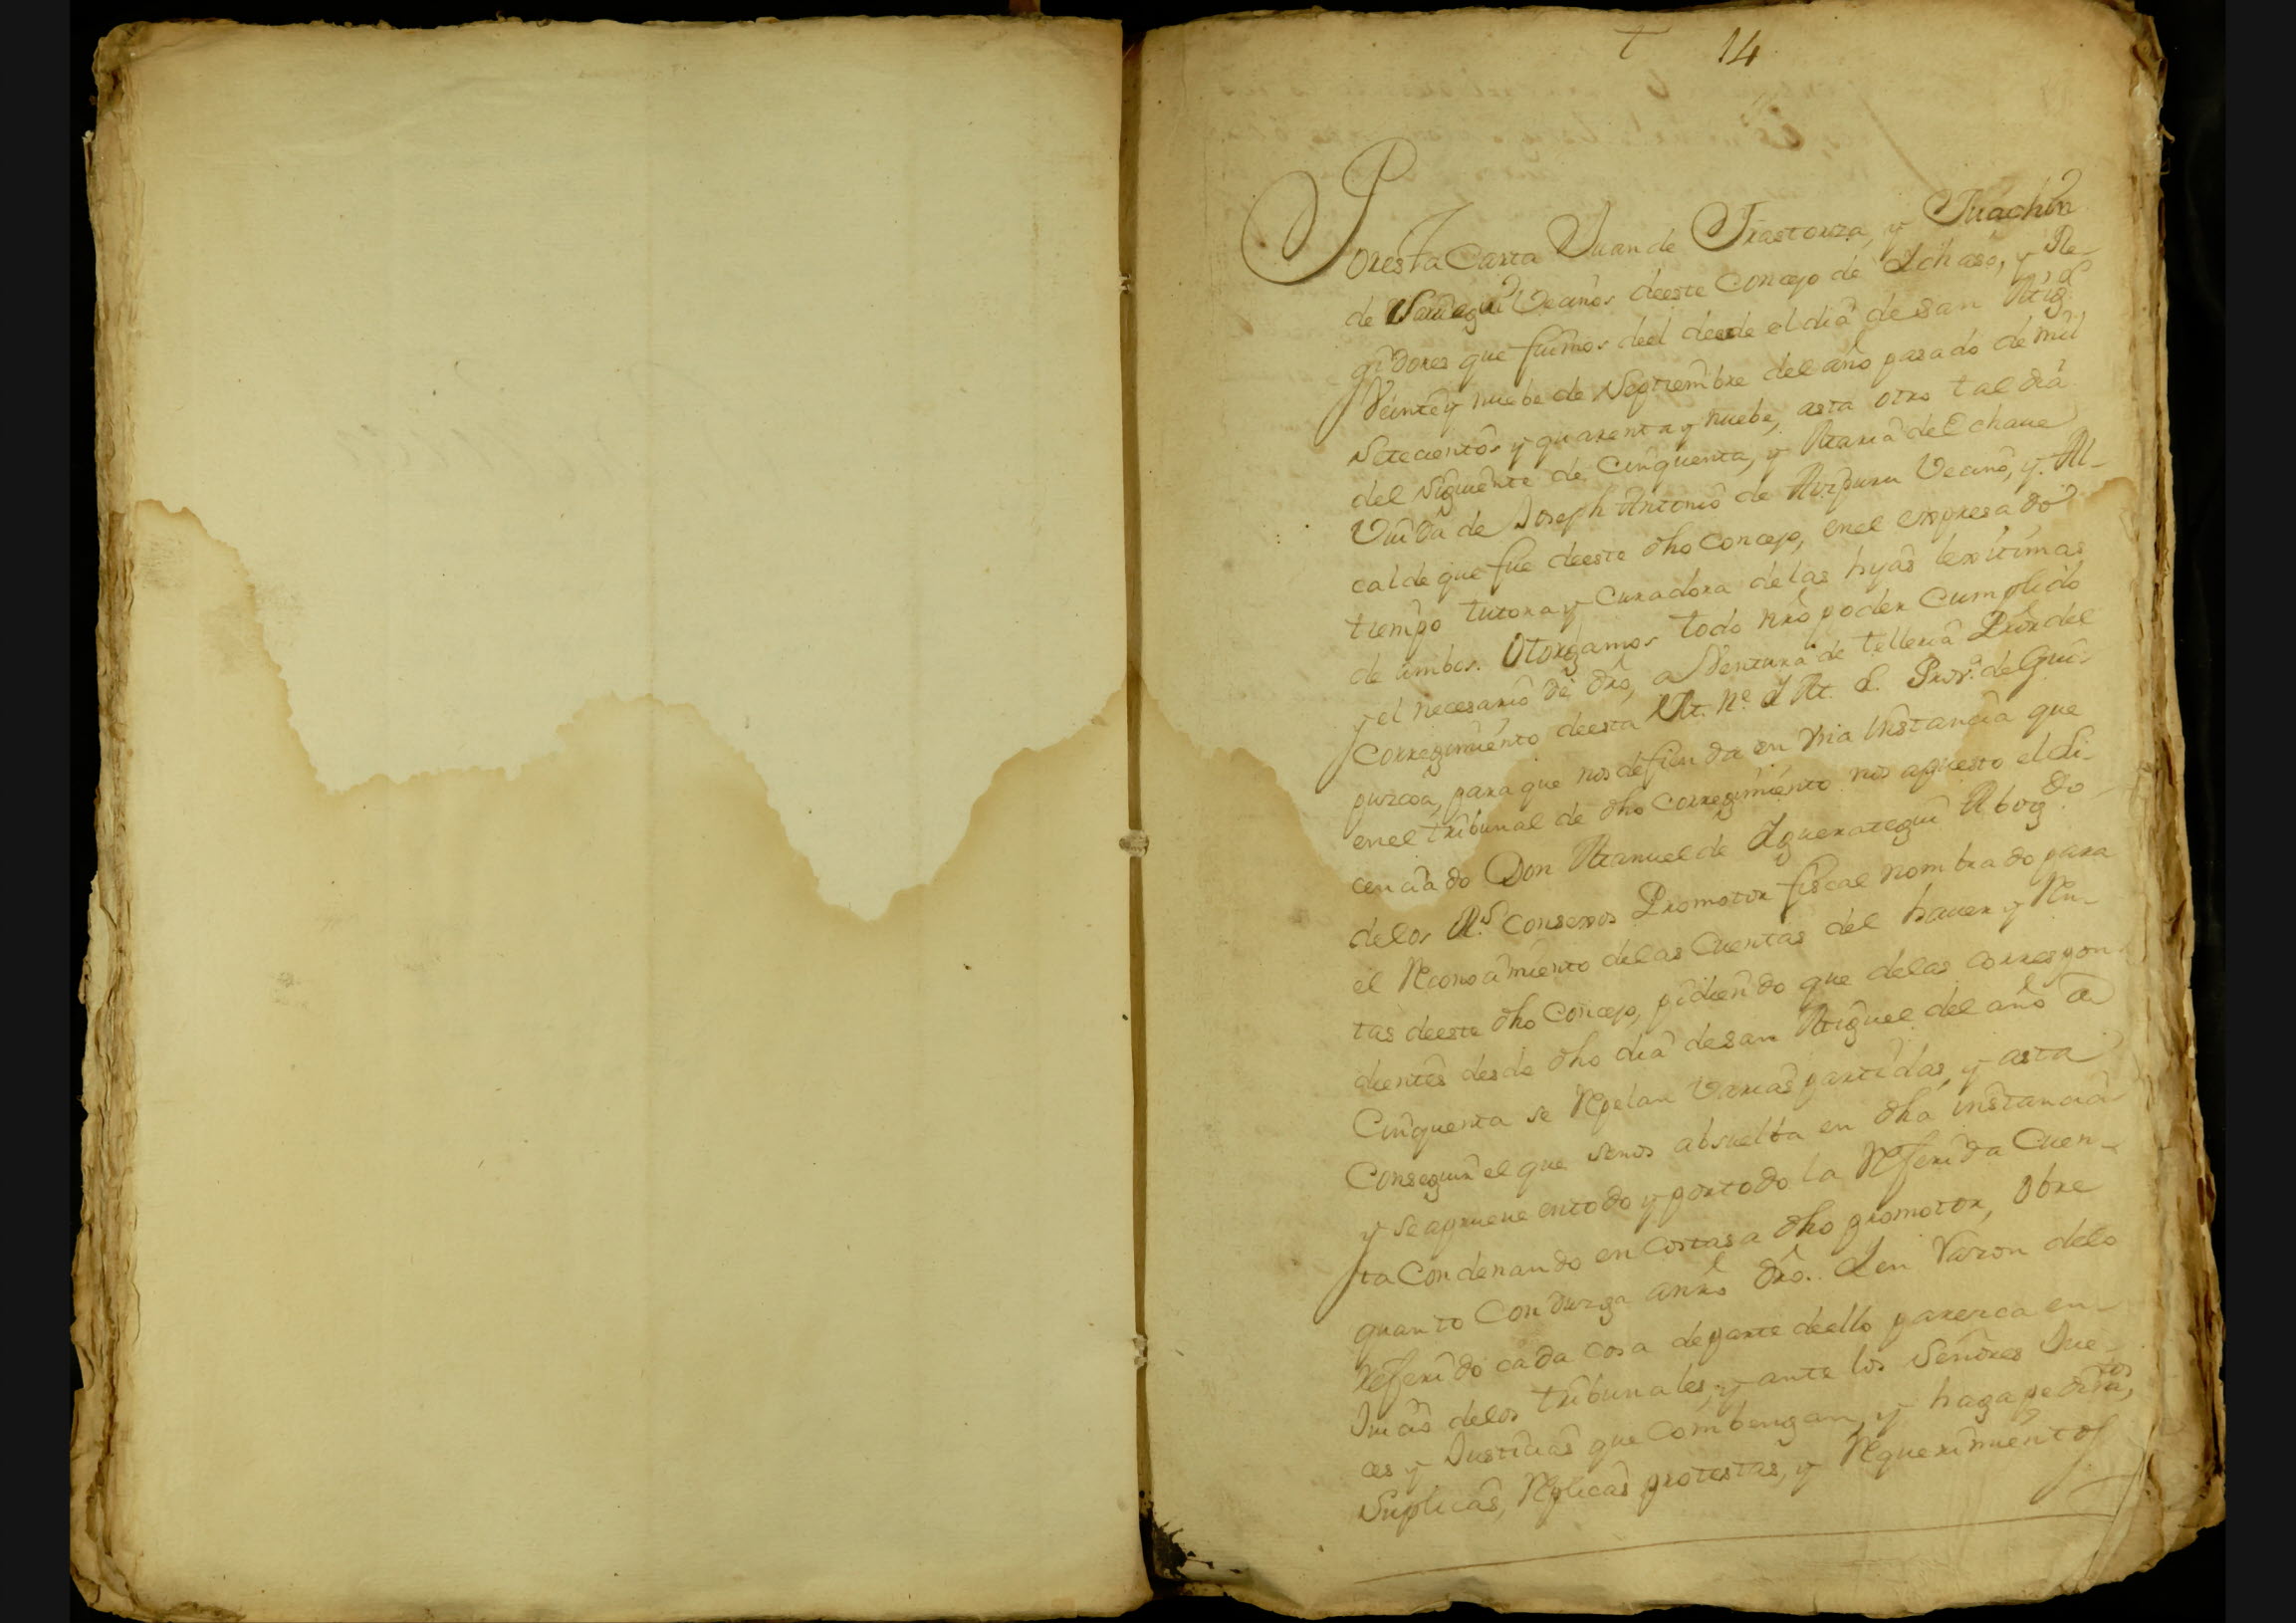 t 14
Por esta Carta Juan de Irastorza, y Juachin
de Vecinos deeste Concejo de Ichaso, y Re-
gidores que fuimos deel desde el dia de san Migl
Veinte y nuebe de Septiembre del año pasado de mil
Setecientos y quarenta y nuebe, asta otro tal dia
del siguiente de Cinquenta, y Maria de Echaue
Viuda de Joseph Antonio de Aizpuru Vecino, y Al-
calde que fue deeste dho Concejo, en el expresado
tiempo tutora y Curadora de las hijas lexitimas
de ambos. Otorgamos todo nro poder Cumplido
y el necesario de dro, a Ventura de telleria Pror del
Corregimiento deesta M. N. y M. L. Prov.ª de Gui-
puzcoa, para que nos defienda en Vna instancia que
en el tribunal de dho Corregimiento nos apuesto el Li-
cenciado Don Manuel de Iguerategui Abogdo
delos Rs. Consexos Promotor fiscal nombrado para
el Reconocimiento delas Cuentas del hauer y Ren-
tas deeste dho Concejo, pidiendo que delas correspon-
dientes desde dho dia de san Miguel del año de
Cinquenta se Repelan Varias partidas, y asta
Conseguir el que senos absuelba en dha instancia
y se aprueue entodo y portodo la Referida Cuen-
ta Condenando en Costas a dho promotor, Obre
quanto Conduzga anro dro. I en Razon delo
Referido cada cosa de parte deello parezca en-
Juicio delos tribunales, y ante los Señores Jue-
ces y Justicias que Combengan, y haga pedimtos,
Suplicas, Replicas protestas, y Requerimientos